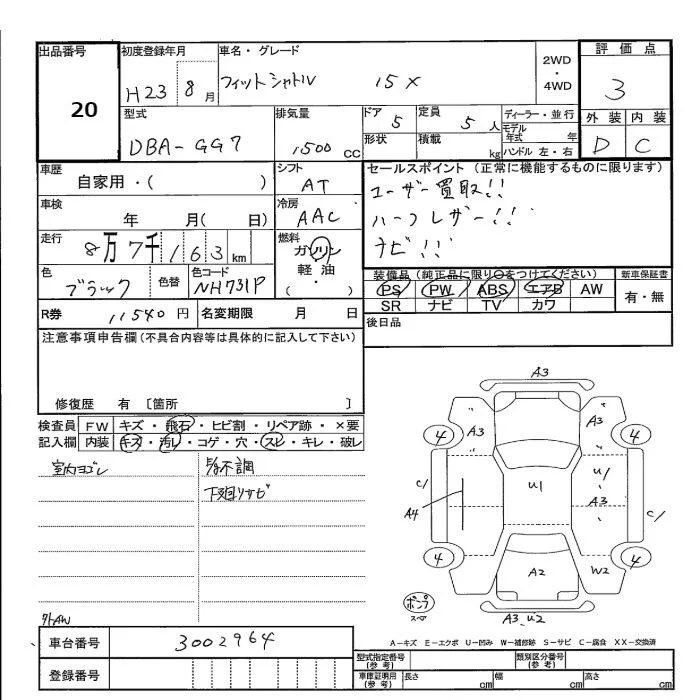 出品番号 初度登録年月 車名・グレード 2WD・4WD 評価点
20 H23 8月 フィットシャトル 15X 3
型式 排気量 ドア 定員 ディーラー・並行 外装 内装
DBA-GG7 1500cc 5 5人 モデル年式 年 D C
形状 積載 kg ハンドル 左・右
車歴 シフト セールスポイント (正常に機能するものに限ります)
自家用・( ) AT ユーザー買取!!
車検 冷房 ハーフレザー!!
年 月( 日) AAC ナビ!!!
走行 燃料
8万7千163km ガソリン・軽油・( )
色 色替 色コード 装備品(純正品に限り○をつけてください) 新車保証書
ブラック NH731P PS PW ABS エアB AW 有・無
SR ナビ TV カワ
R券 11540円 名変期限 月 日 後日品
注意事項申告欄(不具合内容等は具体的に記入して下さい)
修復歴 有 [箇所 ]
検査員記入欄 FW キズ・飛石・ヒビ割・リペア跡・×要
内装 キズ・汚レ・コゲ・穴・スレ・キレ・破レ
室内ヨゴレ
下廻りサビ
社外AW
A3
A3 A3
4 4
U1 U1
A3
A4
4 4
A2 W2
ポンプ
A3 U2
A-キズ E-エクボ U-凹み W-補修跡 S-サビ C-腐食 XX-交換済
車台番号 3002964
登録番号
型式指定番号(参考) 類別区分番号(参考)
車庫証明用(参考) 長さ cm 幅 cm 高さ cm